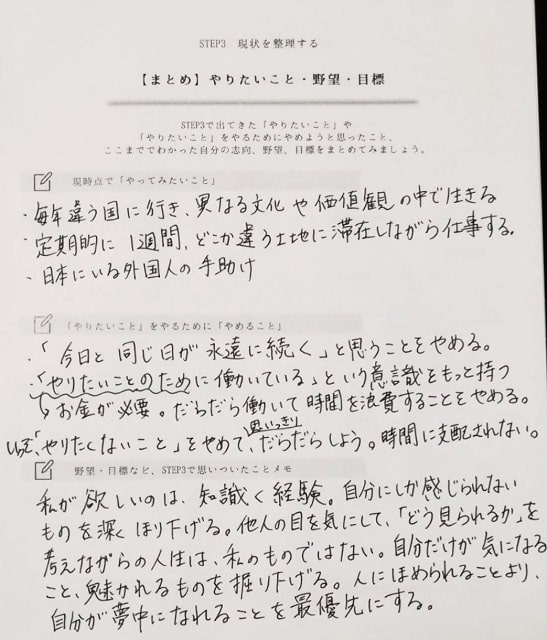 STEP3 現状を整理する
【まとめ】やりたいこと・野望・目標
STEP3で出てきた「やりたいこと」や
「やりたいこと」をやるためにやめようと思ったこと、
ここまででわかった自分の志向、野望、目標をまとめてみましょう。
現時点で「やってみたいこと」
・毎年違う国に行き、異なる文化や価値観の中で生きる
・定期的に1週間、どこか違う土地に滞在しながら仕事する。
・日本にいる外国人の手助け
「やりたいこと」をやるために「やめること」
・「今日と同じ日が永遠に続く」と思うことをやめる。
・「やりたいことのために働いている」という意識をもっと持つ
↳お金が必要。だらだら働いて時間を浪費することをやめる。
思いっきり
いっそ、「やりたくないこと」をやめて、だらだらしよう。時間に支配されない。
野望・目標など、STEP3で思いついたことメモ
私が欲しいのは、知識く経験。自分にしか感じられない
ものを深くほり下げる。他人の目を気にして、「どう見られるか」を
考えながらの人生は、私のものではない。自分だけが気になる
こと、魅かれるものを掘り下げる。人にほめられることより、
自分が夢中になれることを最優先にする。